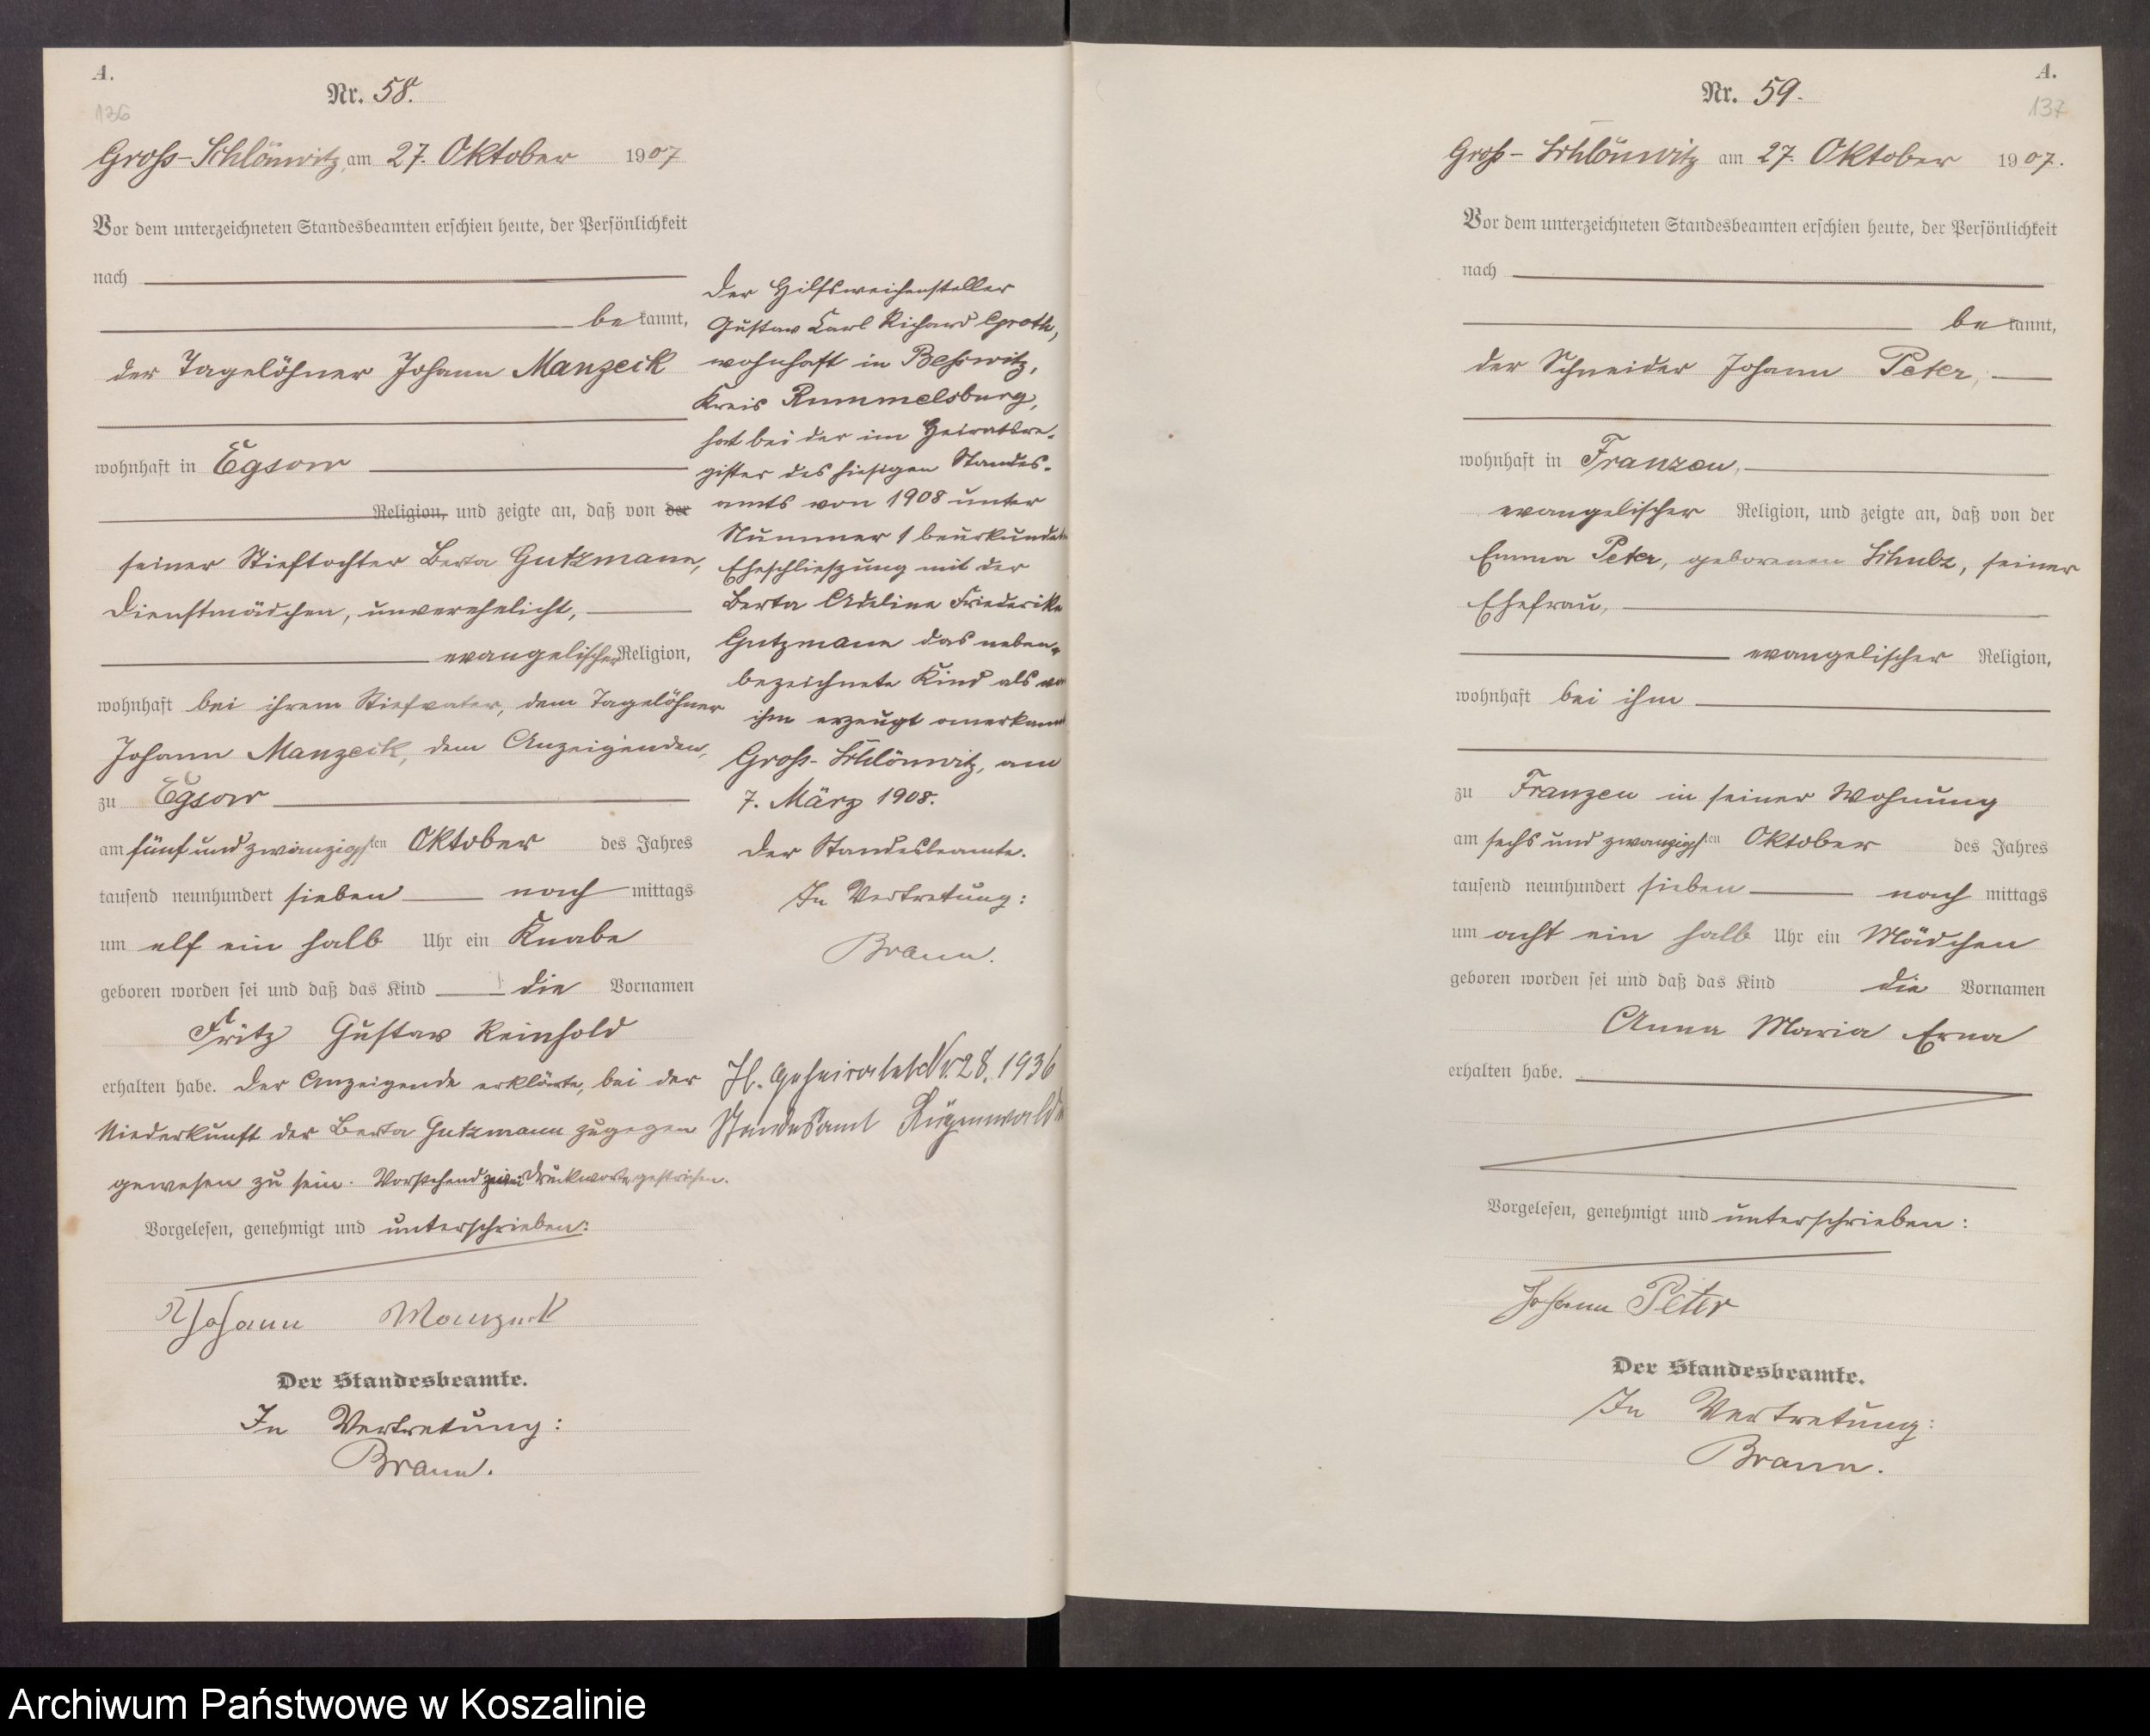 A.
Nr. 58.
136
Groß-Schlönwitz, am 27. Oktober 1907
Vor dem unterzeichneten Standesbeamten erschien heute, der Persönlichkeit
nach
bekannt,
der Tagelöhner Johann Manzeck
wohnhaft in Egsow
Religion, und zeigte an, daß von der
seiner Stieftochter Berta Gutzmann,
Dienstmädchen, unverehelicht,
evangelischer Religion,
wohnhaft bei ihrem Stiefvater, dem Tagelöhner
Johann Manzeck, dem Anzeigenden,
zu Egsow
am fünf und zwanzigsten Oktober des Jahres
tausend neunhundert sieben nach mittags
um elf ein halb Uhr ein Knabe
geboren worden sei und daß das Kind die Vornamen
Fritz Gustav Reinhold
erhalten habe. Der Anzeigende erklärte, bei der
Niederkunft der Berta Gutzmann zugegen
gewesen zu sein. Vorstehend zwei Druckworte gestrichen.
Vorgelesen, genehmigt und unterschrieben:
Johann Manzeck
Der Standesbeamte.
In Vertretung:
Brann.
Der Hilfsweichensteller
Gustav Karl Richard Groth,
wohnhaft in Beßwitz,
Kreis Rummelsburg,
hat bei der im Heiratsre-
gister des hiesigen Standes-
amts von 1908 unter
Nummer 1 beurkundeten
Eheschließung mit der
Berta Adeline Friederike
Gutzmann das neben-
bezeichnete Kind als von
ihm erzeugt anerkannt
Groß-Schlönwitz, am
7. März 1908.
Der Standesbeamte.
In Vertretung:
Brann.
Geheiratet Nr. 28. 1936
Standesamt Rügenwalde
A.
Nr. 59.
137
Groß-Schlönwitz am 27. Oktober 1907.
Vor dem unterzeichneten Standesbeamten erschien heute, der Persönlichkeit
nach
bekannt,
der Schneider Johann Peter,
wohnhaft in Franzen,
evangelischer Religion, und zeigte an, daß von der
Emma Peter, geborenen Schulz, seiner
Ehefrau,
evangelischer Religion,
wohnhaft bei ihm
zu Franzen in seiner Wohnung
am sechs und zwanzigsten Oktober des Jahres
tausend neunhundert sieben nach mittags
um acht ein halb Uhr ein Mädchen
geboren worden sei und daß das Kind die Vornamen
Anna Maria Erna
erhalten habe.
Vorgelesen, genehmigt und unterschrieben:
Johann Peter
Der Standesbeamte.
In Vertretung:
Brann.
Archiwum Państwowe w Koszalinie